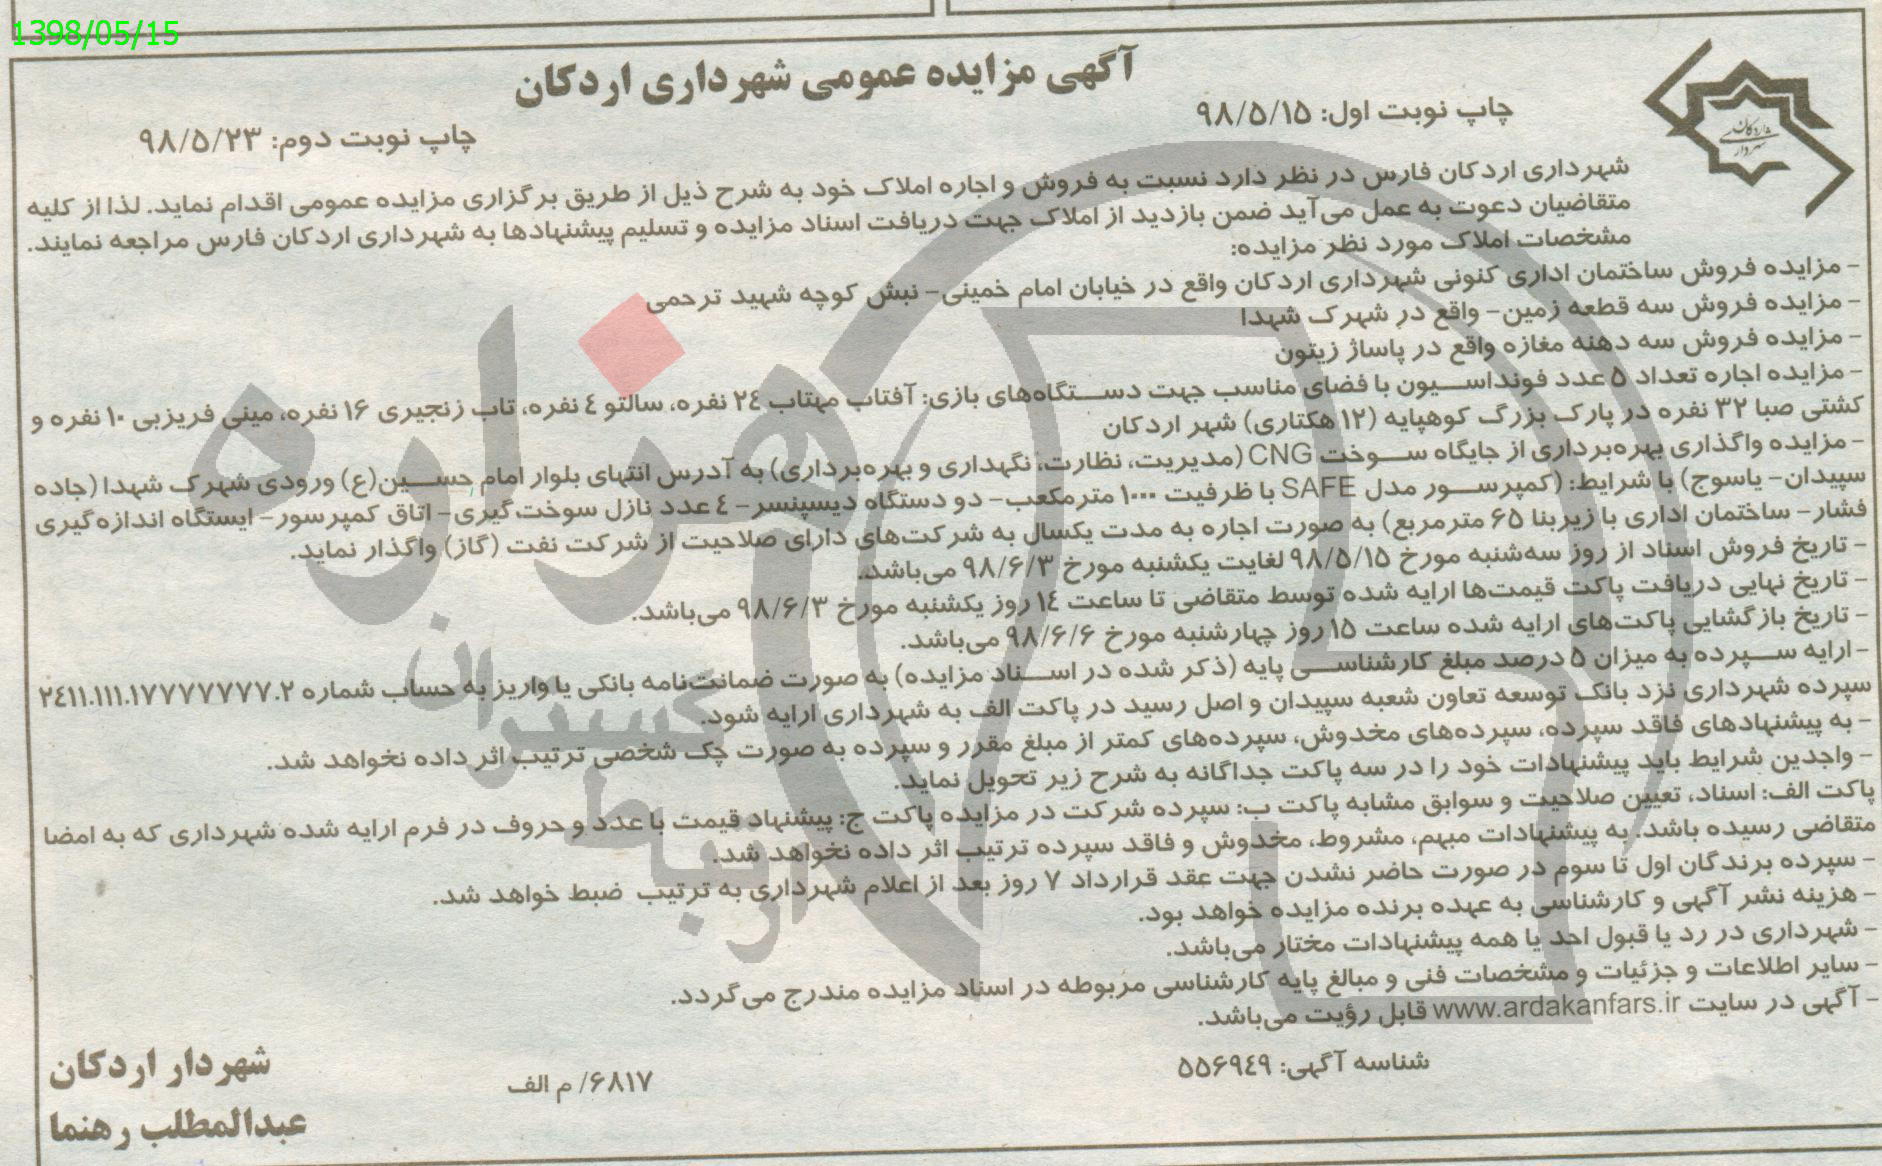 1398/05/15
آگهی مزایده عمومی شهرداری اردکان
چاپ نوبت اول: ۹۸/۵/۱۵
چاپ نوبت دوم: ۹۸/۵/۲۳
شهرداری اردکان فارس در نظر دارد نسبت به فروش و اجاره املاک خود به شرح ذیل از طریق برگزاری مزایده عمومی اقدام نماید. لذا از کلیه
متقاضیان دعوت به عمل می‌آید ضمن بازدید از املاک جهت دریافت اسناد مزایده و تسلیم پیشنهادها به شهرداری اردکان فارس مراجعه نمایند.
مشخصات املاک مورد نظر مزایده:
- مزایده فروش ساختمان اداری کنونی شهرداری اردکان واقع در خیابان امام خمینی- نبش کوچه شهید ترحمی
- مزایده فروش سه قطعه زمین- واقع در شهرک شهدا
- مزایده فروش سه دهنه مغازه واقع در پاساژ زیتون
- مزایده اجاره تعداد ۵ عدد فونداسیون با فضای مناسب جهت دستگاه‌های بازی: آفتاب مهتاب ۲۴ نفره، سالتو ۴ نفره، تاب زنجیری ۱۶ نفره، مینی فریزبی ۱۰ نفره و
کشتی صبا ۳۲ نفره در پارک بزرگ کوهپایه (۱۲ هکتاری) شهر اردکان
- مزایده واگذاری بهره‌برداری از جایگاه سوخت CNG (مدیریت، نظارت، نگهداری و بهره‌برداری) به آدرس انتهای بلوار امام حسین(ع) ورودی شهرک شهدا (جاده
سپیدان- یاسوج) با شرایط: (کمپرسور مدل SAFE با ظرفیت ۱۰۰۰ مترمکعب- دو دستگاه دیسپنسر- ۴ عدد نازل سوخت‌گیری- اتاق کمپرسور- ایستگاه اندازه‌گیری
فشار- ساختمان اداری با زیربنا ۶۵ مترمربع) به صورت اجاره به مدت یکسال به شرکت‌های دارای صلاحیت از شرکت نفت (گاز) واگذار نماید.
- تاریخ فروش اسناد از روز سه‌شنبه مورخ ۹۸/۵/۱۵ لغایت یکشنبه مورخ ۹۸/۶/۳ می‌باشد.
- تاریخ نهایی دریافت پاکت قیمت‌ها ارایه شده توسط متقاضی تا ساعت ۱۴ روز یکشنبه مورخ ۹۸/۶/۳ می‌باشد.
- تاریخ بازگشایی پاکت‌های ارایه شده ساعت ۱۵ روز چهارشنبه مورخ ۹۸/۶/۶ می‌باشد.
- ارایه سپرده به میزان ۵ درصد مبلغ کارشناسی پایه (ذکر شده در اسناد مزایده) به صورت ضمانت‌نامه بانکی یا واریز به حساب شماره ۲۴۱۱.۱۱۱.۱۷۷۷۷۷۷۷.۲
سپرده شهرداری نزد بانک توسعه تعاون شعبه سپیدان و اصل رسید در پاکت الف به شهرداری ارایه شود.
- به پیشنهادهای فاقد سپرده، سپرده‌های مخدوش، سپرده‌های کمتر از مبلغ مقرر و سپرده به صورت چک شخصی ترتیب اثر داده نخواهد شد.
- واجدین شرایط باید پیشنهادات خود را در سه پاکت جداگانه به شرح زیر تحویل نماید.
پاکت الف: اسناد، تعیین صلاحیت و سوابق مشابه پاکت ب: سپرده شرکت در مزایده پاکت ج: پیشنهاد قیمت با عدد و حروف در فرم ارایه شده شهرداری که به امضا
متقاضی رسیده باشد. به پیشنهادات مبهم، مشروط، مخدوش و فاقد سپرده ترتیب اثر داده نخواهد شد.
- سپرده برندگان اول تا سوم در صورت حاضر نشدن جهت عقد قرارداد ۷ روز بعد از اعلام شهرداری به ترتیب ضبط خواهد شد.
- هزینه نشر آگهی و کارشناسی به عهده برنده مزایده خواهد بود.
- شهرداری در رد یا قبول احد یا همه پیشنهادات مختار می‌باشد.
- سایر اطلاعات و جزئیات و مشخصات فنی و مبالغ پایه کارشناسی مربوطه در اسناد مزایده مندرج می‌گردد.
- آگهی در سایت www.ardakanfars.ir قابل رؤیت می‌باشد.
شناسه آگهی: ۵۵۶۹۴۹
۶۸۱۷/ م الف
شهردار اردکان
عبدالمطلب رهنما
هزاره
گستران
ارتباط